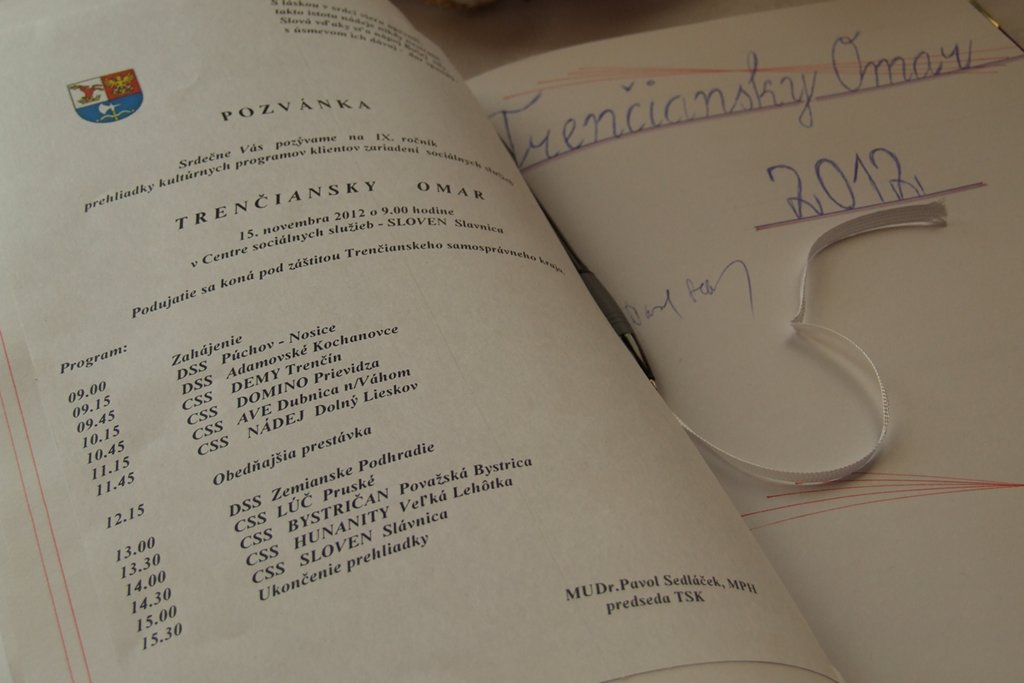 S láskou v srdci
takto istotu nádeje nikdy
Slová vďaky
s úsmevom ich dával - dar
POZVÁNKA
Srdečne Vás pozývame na IX. ročník
prehliadky kultúrnych programov klientov zariadení sociálnych služieb
TRENČIANSKY OMAR
15. novembra 2012 o 9.00 hodine
v Centre sociálnych služieb - SLOVEN Slavnica
Podujatie sa koná pod záštitou Trenčianskeho samosprávneho kraja.
Program:
09.00 Zahájenie
09.15 DSS Púchov - Nosice
09.45 DSS Adamovské Kochanovce
10.15 CSS DEMY Trenčín
10.45 CSS DOMINO Prievidza
11.15 CSS AVE Dubnica n/Váhom
11.45 CSS NÁDEJ Dolný Lieskov
12.15 Obedňajšia prestávka
13.00 DSS Zemianske Podhradie
13.30 CSS LÚČ Pruské
14.00 CSS BYSTRIČAN Považská Bystrica
14.30 CSS HUNANITY Veľká Lehôtka
15.00 CSS SLOVEN Slávnica
15.30 Ukončenie prehliadky
MUDr.Pavol Sedláček, MPH
predseda TSK
Trenčiansky Omar
2012.